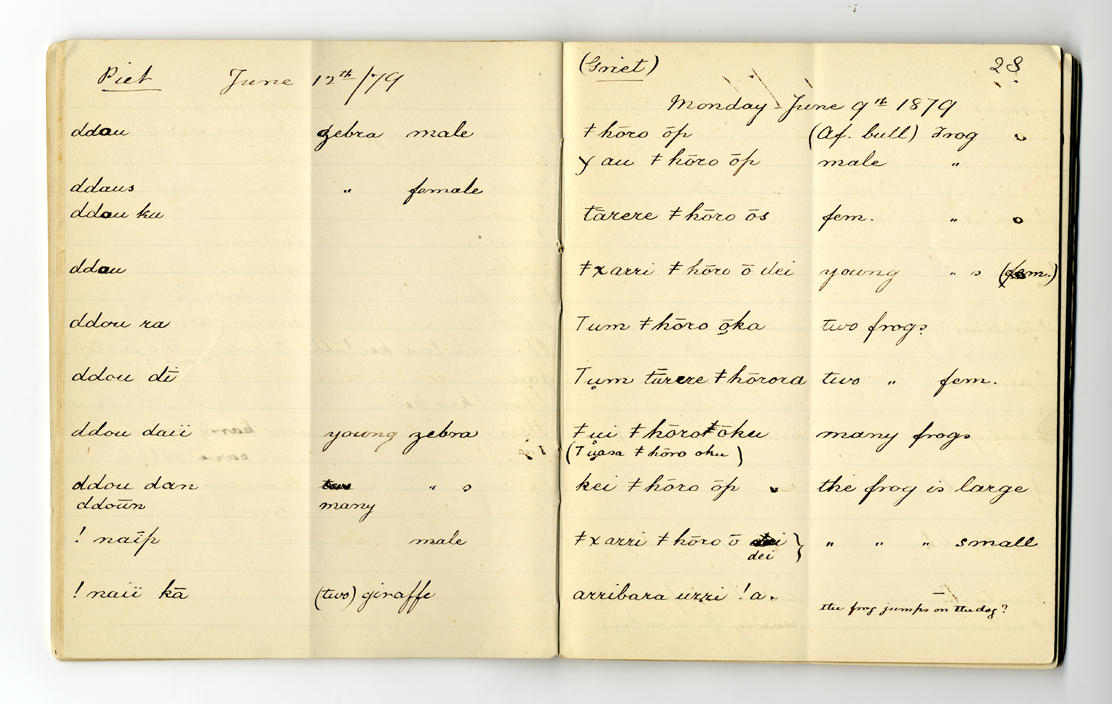 Piet June 12th/79
ddau zebra male
ddaus " female
ddau ku
ddau
ddou ra
ddou dī
ddou daiï young zebra
ddou dan " s
ddoūn many
! naīp male
! naiï kā (two) giraffe
(Griet) 28
Monday June 9th 1879
ǂ hōro ōp (Af. bull) Frog
au ǂ hōro ōp male "
tārere ǂ hōro ōs fem. "
ǂ x arri ǂ hōro ō dei young " s (fem.)
Tum ǂ hōro ōka two frogs
Tum tārere ǂ hōrora two " fem.
ǂ ui ǂ hōro ōku many frogs
(Tůasa ǂ hōro oku)
kei ǂ hōro ōp the frog is large
ǂ x arri ǂ hōro ō } " " " small
dei
arribara uri !a. the frog jumps on the dog?